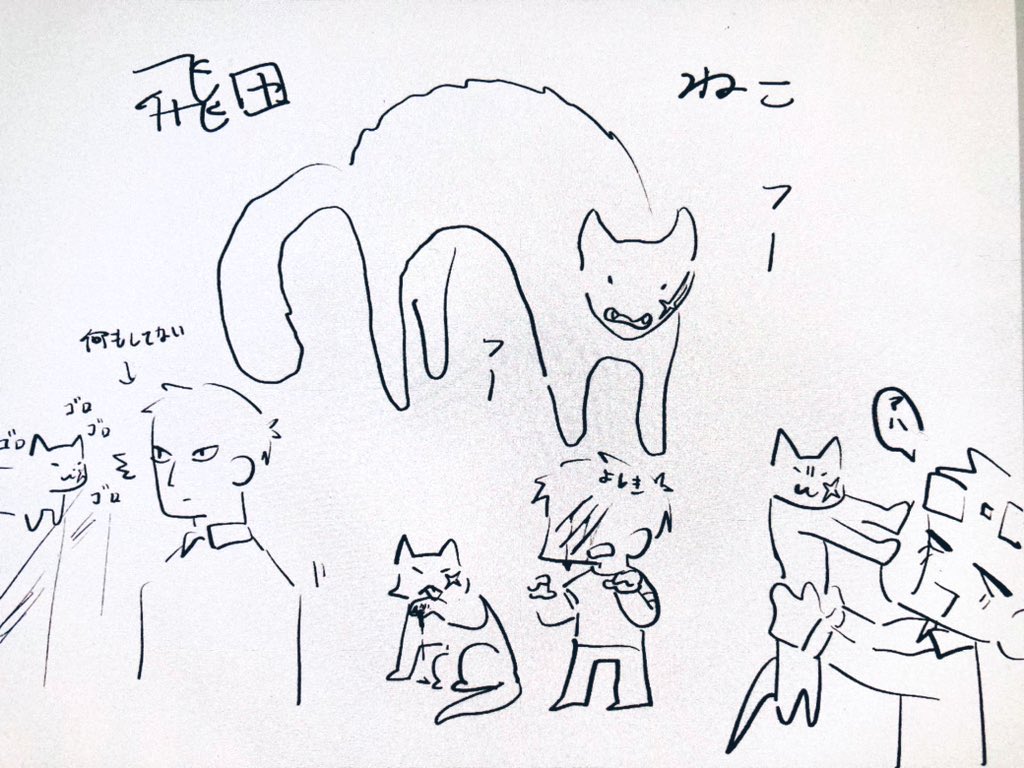 飛田
ねこ
フー
フー
何もしてない
ゴロ
ゴロ
ゴロ
ゴロ
よしき
アハ